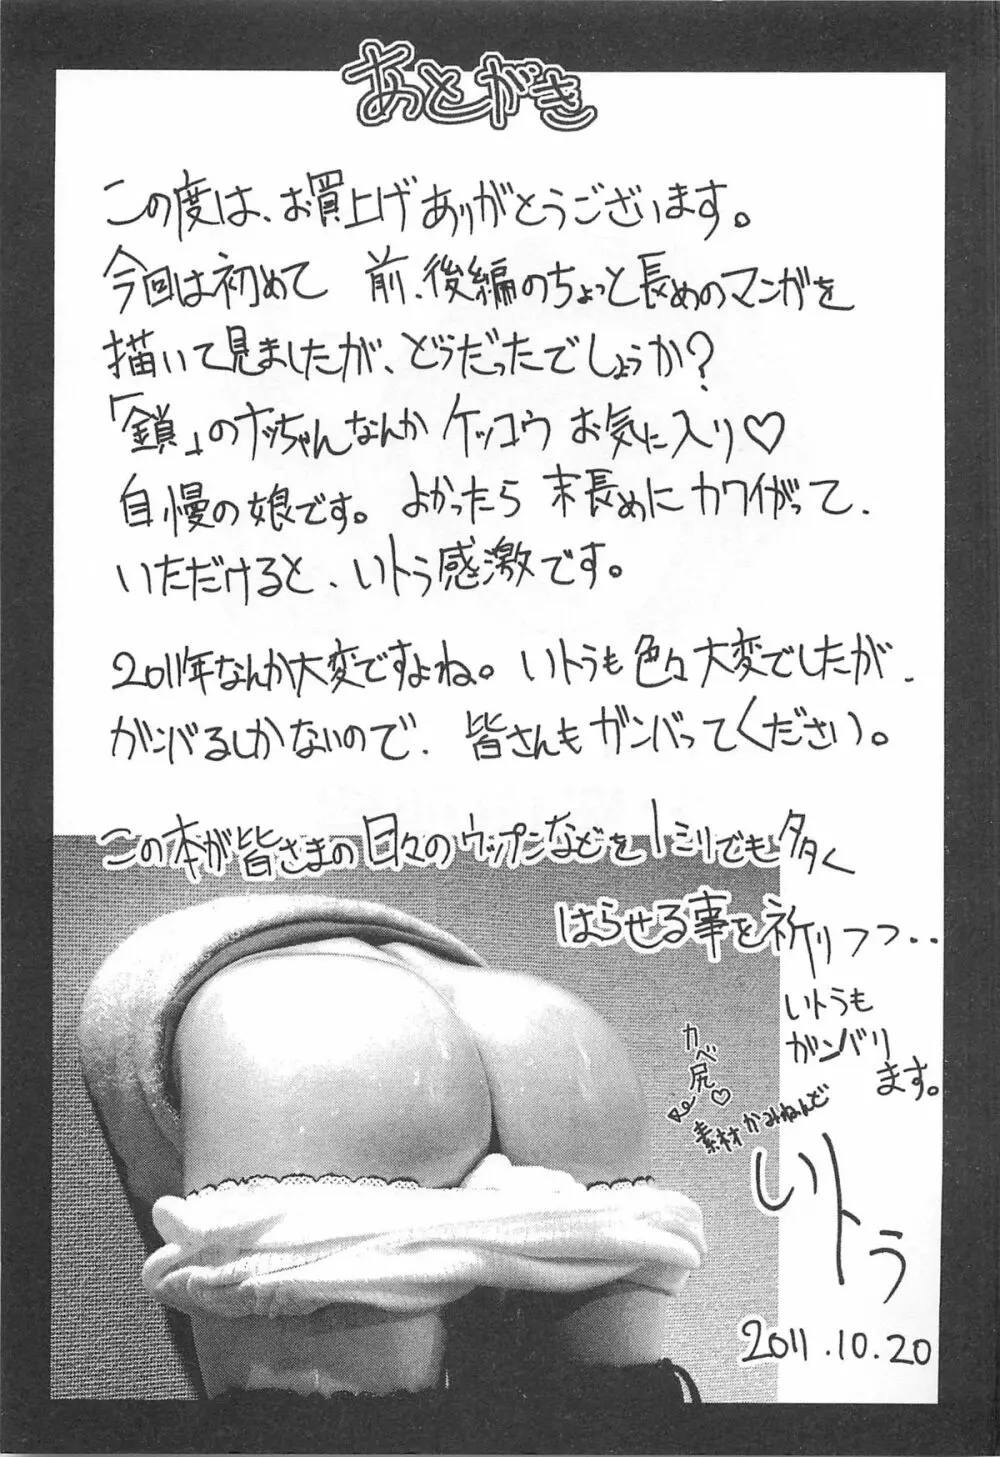 あとがき
この度は、お買上げありがとうございます。
今回は初めて 前、後編のちょっと長めのマンガを
描いて見ましたが、どうだったでしょうか？
「鎖」のナッちゃんなんか ケッコウ お気に入り♡
自慢の娘です。よかったら 末長めにカワイがって、
いただけると、いトう感激です。
2011年なんか大変ですよね。いトうも色々大変でしたが、
ガンバるしかないので、皆さんもガンバってください。
この本が皆さまの日々のウップンなどを1ミリでも多く
はらせる事を祈りつつ・・
いトうも
がんバり
ます。
カベ尻♡
Re
素材 かみねんど
いトう
2011.10.20